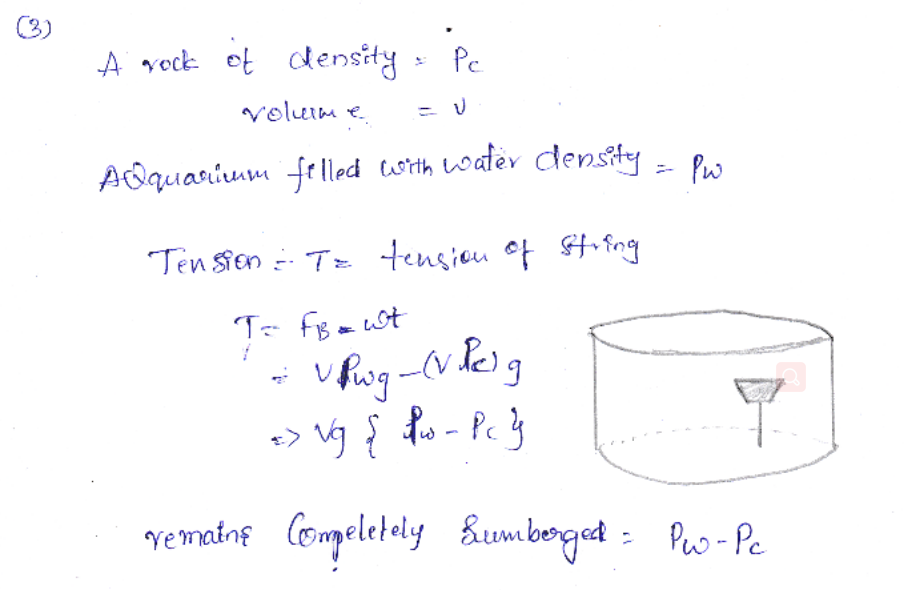 (3)
A rock of density = Pc
volume = V
AQquarium filled with water density = Pw
Tension = T = tension of string
T = FB - wt
= VPwg - (VPc)g
=> Vg { Pw - Pc }
remains Compeletely Sumberged = Pw - Pc